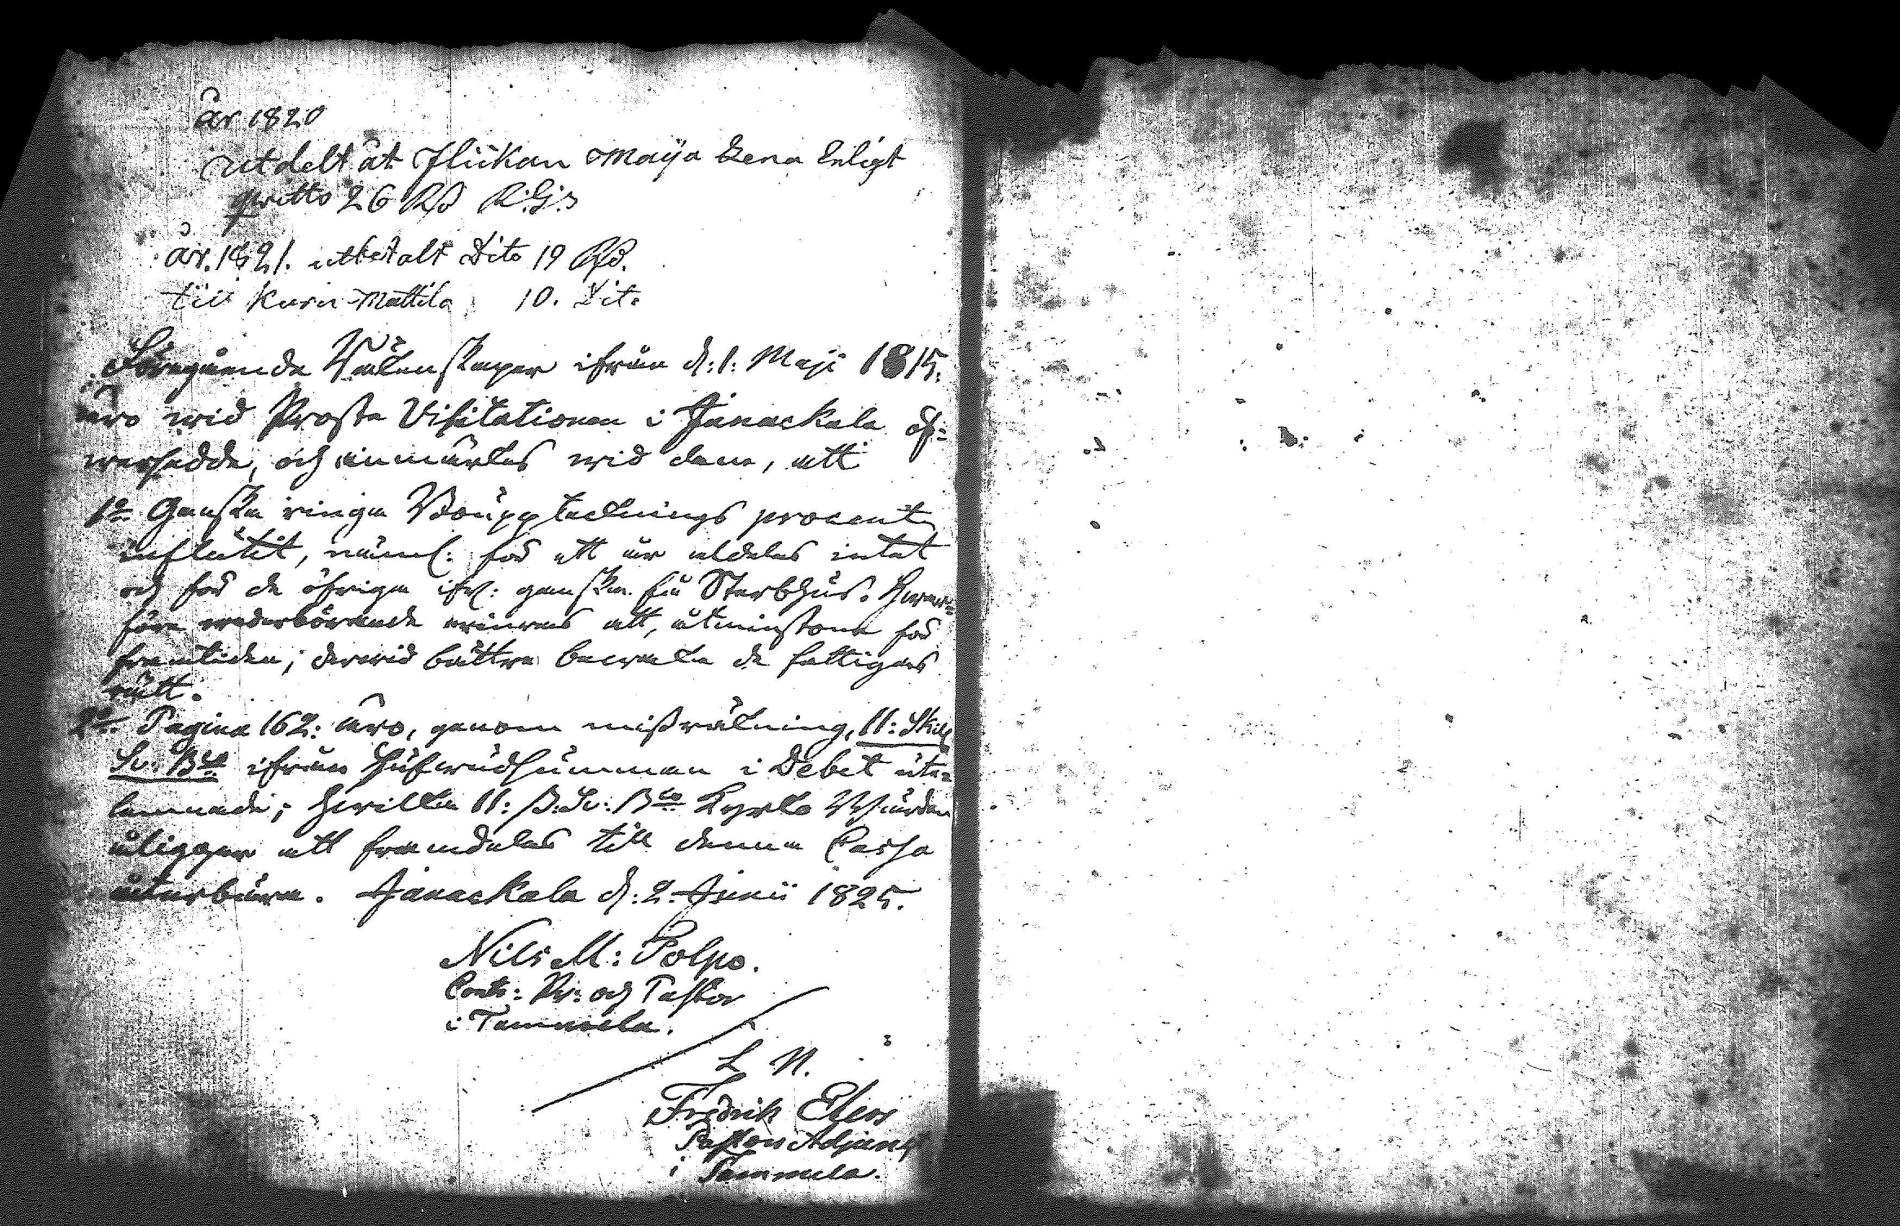 år 1820
utdelt åt Flickan Maija Lena Enligt
qvitto 26 Rd R.G:s
år. 1821. utbetalt Dito 19 Rd.
till Mattila 10. Dit.
Föregående Räkenskaper ifrån d: 1: Maji 1815.
äro wid Prosta Visitationen i Janackala öf-
wersedde, och anmärktes wid dem, att
1o Ganska ringa Bouppteknings procent
influtit, näml: för ett år aldeles intet
och för de öfriga ganska få Sterbhus. Hwar-
före wederbörande erinras att, åtminstone för
framtiden, derwid bättre bewaka de fattigas
rätt.
2o. Pagina 162: äro, genom missräkning, 11: Skill
Sv: Bco ifrån Hufwudsumman i Debet ute-
lemnade; hwilka 11: ß: Sv: Bco Kyrko Wärden
åligger att framdeles till denna Cassa
återbära. Janackala d: 2. Junii 1825.
Nils M: Tolpo.
Contr: Pr: och Pastor
i Tammela.
L N.
Fredrik
Pastors Adjunct
i Tammela.